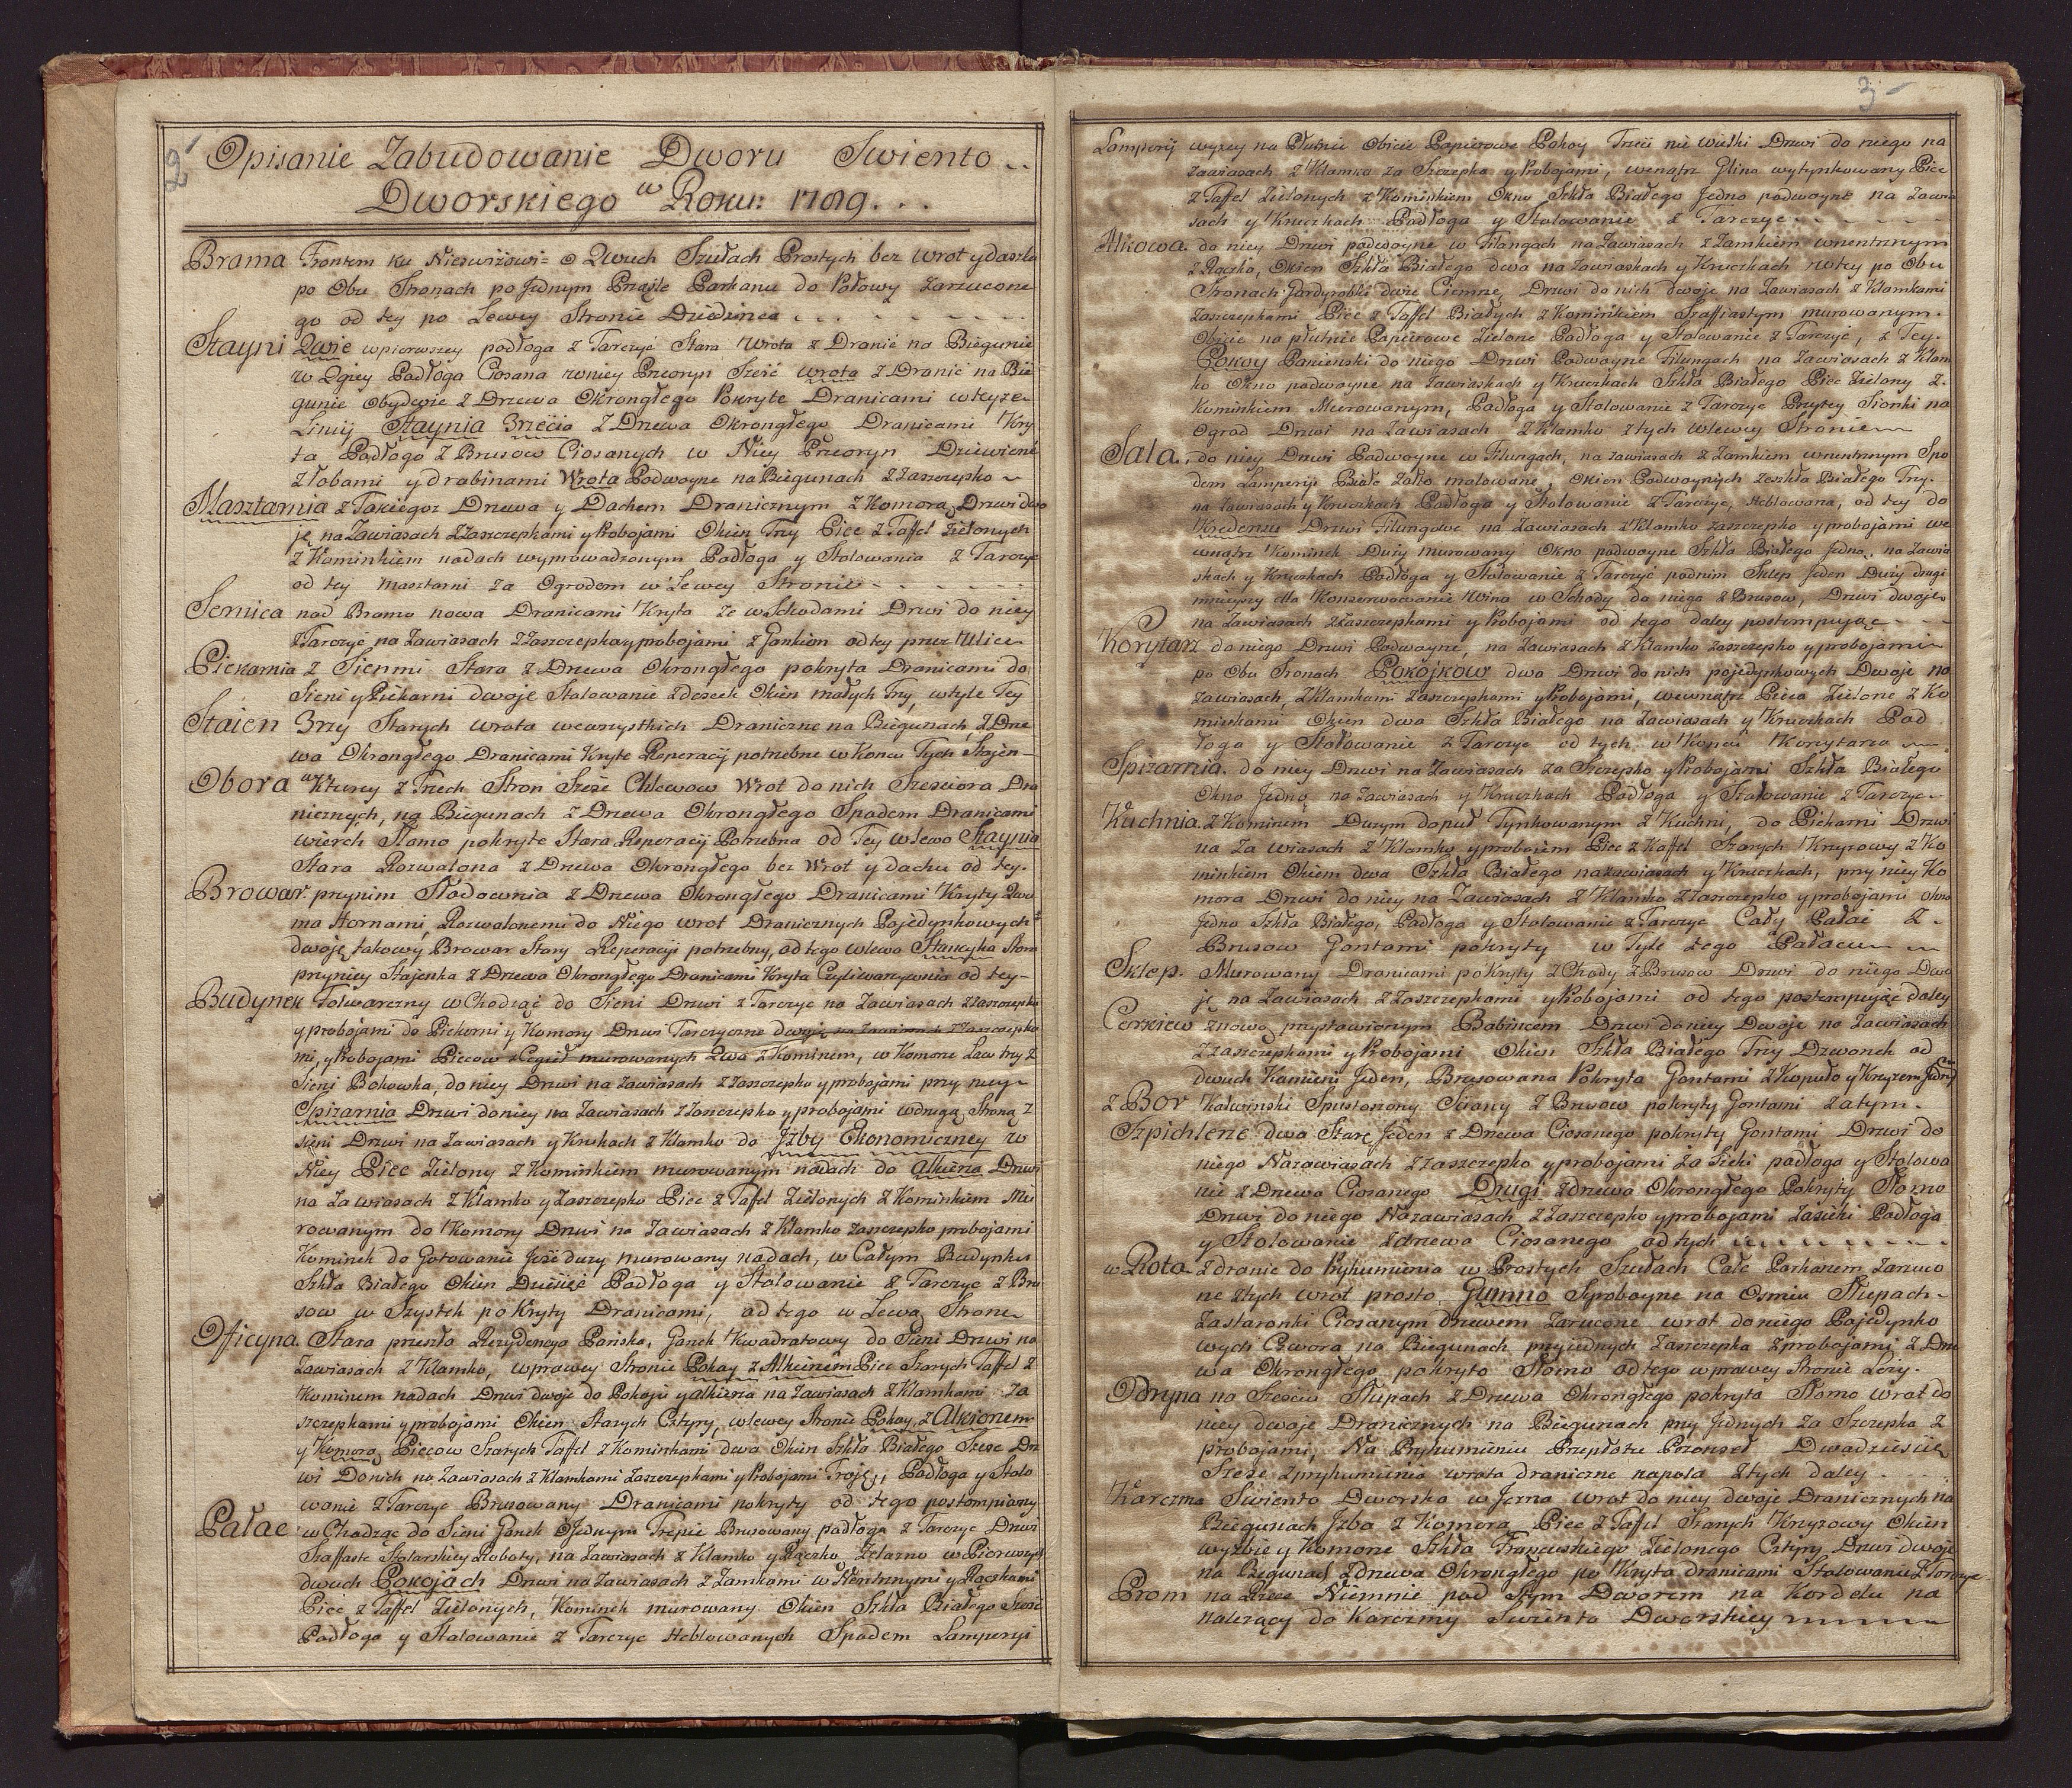 2
Opisanie Zabudowanie Dworu Swiento..
Dworskiego w Roku: 1789...
Brama Frontem ku Nieswiżowi= o Dwuch Szułach Prostych bez Wrot y daszku
po Obu Stronach po Jednym Przęśle Parkanu do Połowy Zarzucone
go od tey po Lewey Stronie Dziedzinca
Stayni Dwie w pierwszey podłoga z Tarczyc Stara Wrota z Dranic na Biegunie
w Dgiey Padłoga Ciosana w niey Przoryn Sześć Wrota z Dranic na Bie
gunie Obydwie z Drzewa Okrongłego Pokryte Dranicami w teyze
Linij Staynia 3rzecia z Drzewa Okrongłego Dranicami Kry
ta Podłogo z Brusow Ciosanych w Niey Przoryn Dziewienc
z łobami y drabinami Wrota Podwoyne na Biegunach z Zaszczepko
Masztarnia z Takiegoz Drzewa y Dachem Dranicznym z Komorą Drzwi dwo
ję na Zawiasach z Zaszczepkami y Probojami Okien Trzy Piec z Taffel Zielonych
z Kominkiem nadach wyprowadzonym Padłoga y Stolowania z Tarczyc
od tey masztarni za Ogrodem w Lewey Stronie
Sernica nad Bramo nowa Dranicami Kryta ze w Schodami Drzwi do niey
z Tarczyc na Zawiasach z Zaszczepko y probojami z Gankiem od tey przez Ulice
Piekarnia z Sieńmi Stara z Drzewa Okrongłego pokryta Dranicami do
Sieni y Piekarni dwoje Stalowanie z desek Okien małych Trzy, w tyle Tey
Staien 3rzy Starych Wrota we wszystkich Draniczne na Biegunach, z Drze
wa Okrongłego Dranicami Kryte Reperacij potrzebne w Koncu Tych Stajen
Obora w Kturey z Trzech Stron Szesc Chlewow Wrot do nich Szesciora Dra
nicznych, na Biegunach z Drzewa Okrongłego Spodem Dranicami
wierch Słomo pokryte Stara Reperacij Potrzebna od Tey w lewo Staynia
Stara Rozwalona z Drzewa Okrongłego bez Wrot y dachu od tey.
Browar. przynim Słodownia z Drzewa Okrongłego Dranicami Kryty Dwo
ma Hornami Rozwalonemi do Niego wrot Dranicznych Pojedynkowych
dwoję, takowy Browar Stary Reperacji potrzebny, od tego w lewo Stancyka Stara
przyniey Stajenka z Drzewa Okrongłego Dranicami Kryta Czyli warzywnia od tey
Budynek Folwarczny w Chodząc do Sieni Drzwi z Tarczyc na Zawiasach z Zaszczepko
y probojami do Piekarni y Komory Drzwi Tarczyczne dwoję na Zawiasach z Zaszczepka
mi, y Probojami Piecow z Cegieł murowanych Dwa z Kominem, w Komorze Law trzy z
Sieni Bokowka, do niey Drzwi na Zawiasach z Zaszczepko y probojami przy niey
Spizarnia Drzwi do niey na Zawiasach z Zaszczepko y probojami w drugą Stroną z
sieni Drzwi na Zawiasach y Krukach z Klamko do Jzby Ekonomiczney w
Niey Piec Zielony z Kominkiem murowanym nadach do alkierza Drzwi
na Zawiasach z Klamko y Zaszczepko Piec z Taffel Zielonych z Kominkiem Mu
rowanym do Komory Drzwi na Zawiasach z Klamko zaszczepko probojami
Kominek do Gotowanie Jeśc duzy murowany nadach, w Całym Budynku
Szkła Białego Okien Dziesięc Padłoga y Stalowanie z Tarczyc z Bru
sow w Szystek po Kryty Dranicami, od tego w Lewą Strone
Officyna. Stara przeszła Rezydencyo Pańsko, Ganek Kwadratowy do Sieni Drzwi na
Zawiasach z Klamko, w prawey Stronie Pokoy z Alkierzem Piec Szarych Taffel z
Kominem nadach Drzwi dwoje do Pokoju y alkierza na Zawiasach z Klamkami za
szczepkami y probojami Okien Starych Cztyry, w lewey Stronie Pokoy z Alkierzem
y Komorą Piecow Szarych Taffel z Kominkami dwa Okien Szkła Białego Szesc Drz
wi Do nich na Zawiasach z Klamkami Zaszczepkami y Probojami Troję, Padłoga y Stolo
wanie z Tarczyc Brusowany Dranicami pokryty od tego postompiwszy
Pałac w Chodząc do Sieni Ganek o Jednym Trepie Brusowany, padłoga z Tarczyc Drzwi
Szaffaste Stolarskiey Roboty, na Zawiasach z Klamko y Rączko, Zelazno w Pierwszych
dwuch Pokojach Drzwi na Zawiasach z Zamkami w Nentrznymi y Rączkami
Piec z Taffel Zielonych, Kominek murowany Okien Szkła Białego Szesc
Padłoga y Stalowanie z Tarczyc Heblowanych Spodem Lamperyi
3
Lamperij wyzey na Płutnie Obicie Papierowe Pokoy Trzeci nie wielki Drzwi do niego na
zawiasach z Klamko za Szczepko y Probojami, wenątrz Glino wytynkowany Piec
z Taffel Zielonych z Kominkiem Okno Szkła Białego Jedno podwoyne na Zawia
sach y Kruczkach Padłoga y Stalowanie z Tarczyc
Alkowa. do niey Drzwi podwoyne w Filongach na Zawiasach z Zamkiem wnentrznym
z Rączko, Okien Szkła Białego dwa na zawiaskach y Kruczkach w tey po Obu
Stronach Gardyrobki dwie Ciemne, Drzwi do nich dwoje na Zawiasach z Klamkami
Zaszczepkami Piec z Taffel Białych z Kominkiem Szaffiastym murowanym.
Obicie na płutnie Papierowe Zielone Padłoga y Stalowanie z Tarczyc, z Tey.
Pokoy Panienski do niego Drzwi Podwoyne Filungach na Zawiasach z Klam
ko Okno podwoyne na zawiaskach y Kruczkach Szkła Białego Piec Zielony z
Kominkiem Murowanym, Padłoga y Stalowanie z Tarczyc Przytey Sionki na
Ogrod Drzwi na Zawiasach z Klamko z tych w lewey Stronie
Sala. do niey Drzwi Podwoyne w Filungach, na zawiasach z Zamkiem wnentrznym Spo
dem Lamperije Białe Zołto malowane, Okien Podwoynych ze szkła Białego Trzy.
na Zawiasach y Kruczkach Padłoga y Stalowanie z Tarczyc, Heblowana, od tey do
Kredensu Drzwi Filungowe na Zawiasach z Klamko zaszczepko y probojami we
wnątrz Kominek Duży murowany Okno podwoyne Szkła Białego Jedno, na Zawia
skach y Kruczkach Padłoga y Stalowanie z Tarczyc podnim Sklep Jeden Duży drugi
mnieyszy dla Konserwowanie Wina w Schody do niego z Brusow, Drzwi dwoje
na Zawiasach z Zaszczepkami y Probojami od tego daley postempujęc
Korytarz do niego Drzwi Podwoyne, na Zawiasach z Klamko zaszczepko y probojami
po Obu Stronach Pokojkow dwa Drzwi do nich pojedynkowych Dwoje na
Zawiasach, z Klamkami Zaszczepkami y Probojami, wewnątrz Pieca Zielone z Ko
minkami Okien dwa Szkła Białego na Zawiasach y Kruczkach Pad
łoga y Stołowanie z Tarczyc od tych w Koncu Korzytarza
Spizarnia. do niey Drzwi na Zawiasach Za Szczepko y Probojami Szkła Białego
Okno Jedno na Zawiasach y Kruczkach Padłoga y Stalowanie z Tarczyc
Kuchnia. z Kominem Duzym do puł Tynkowanym z Kuchni, do Piekarni Drzwi
na Za wiasach z Klamko y probojem Piec z Kaffel Szarych Krzyzowy z Ko
minkiem Okien dwa Szkła Białego na zawiasach y Kruczkach, przy niey Ko
mora Drzwi do niey na Zawiasach z Klamko z Zaszczepko y probojami Okno
Jedno Szkła Białego, Padłoga y Stalowanie z Tarczyc Cały Pałac z
Brusow Gontami pokryty w Tyle tego Pałacu
Sklep. Murowany Dranicami pokryty z Chody z Brusow Drzwi do niego Dwo
je na Zawiasach z Zaszczepkami y Probojami od tego postempując daley
Cerkiew z nowo przystawionym Babincem Drzwi do niey Dwoje na Zawiasach
z zaszczepkami y Probojami Okien Szkła Białego Trzy Dzwonek od
dwuch Kamieni Jeden, Brusowana Pokryta Gontami z Kopuło y Krzyzem Jednym
z Bor Kalwinski Spustoszony Sciany z Brusow pokryty Gontami zatym.
Szpichlerze dwa Stare Jeden z Drzewa Ciosanego pokryty Gontami, Drzwi do
niego Nazawiasach z Zaszczepko y probojami Za Sieki padłoga y Stolowa
nie z Drzewa Ciosanego Drugi z drzewa Okrongłego Pokryty Słomo
Drzwi do niego Nazawiasach z Zaszczepko y probojami Zasieki Padłoga
y Stolowanie z drzewa Ciosanego od tych
w Rota z dranic do Przyhumienia w Prostych Szułach Całe Parkanem Zarzuco
ne z tych wrot prosto Gumno Szproboyne na Osmiu Słupach
Zastaronki Ciosanym Drzewem Zarzucone wrot do niego Pojedynko
wych Czwora na Biegunach przyjednych Zaszczepka z probojami z Drze
wa Okrongłego pokryto Słomo od tego w prawey Stronie Lezy.
Odryna na Sześciu Słupach z Drzewa Okrongłego pokryta Słomo wrot do
niey dwoje Dranicznych na Biegunach przy Jednych Za Szczepka z
probojami, Na Przyhumieniu Przepłotu Przenseł Dwadziescie
Szesc z przyhumienia wrota draniczne napola z tych daley
Karczma Swiento Dworska w Jezna Wrot do niey dwoje Dranicznych na
Biegunach Jzba z Komoro, Piec z Taffel Szarych Krzyzowy Okien
wyzbie y Komorze Szkła Francuskiego Zielonego Cztyry Drzwi dwoje
na Biegunach z drzewa Okrongłego po Kryta dranicami Stalowanie z Tarczyc
Prom na Rzece Niemnie pod tym Dworem na Kordelu na
nalezący do Karczmy Swiento Dworskiey